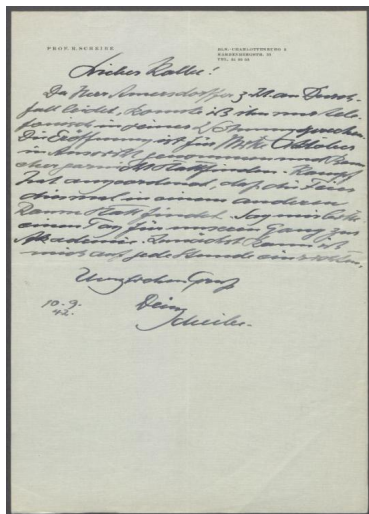 PROF. R. SCHEIBE
BLN.-CHARLOTTENBURG 9
TEL.
Lieber Kolbe!
Da Herr Amersdorffer z. Zt. an Durch-
fall leidet, konnte ich ihn nur tele-
fonisch in seiner Wohnung sprechen.
Die Eröffnung ist für Mitte Oktober
in Aussicht genommen und kann
eher garnicht stattfinden.
hat angeordnet, daß die Feier
diesmal in einem anderen
Raum stattfindet. Sag mir bitte
einen Tag für unsern Gang zur
Akademie. Zunächst kann ich
mich auf jede Stunde einrichten.
Herzlichen Gruß
10.9.
42.
Dein
Scheibe.